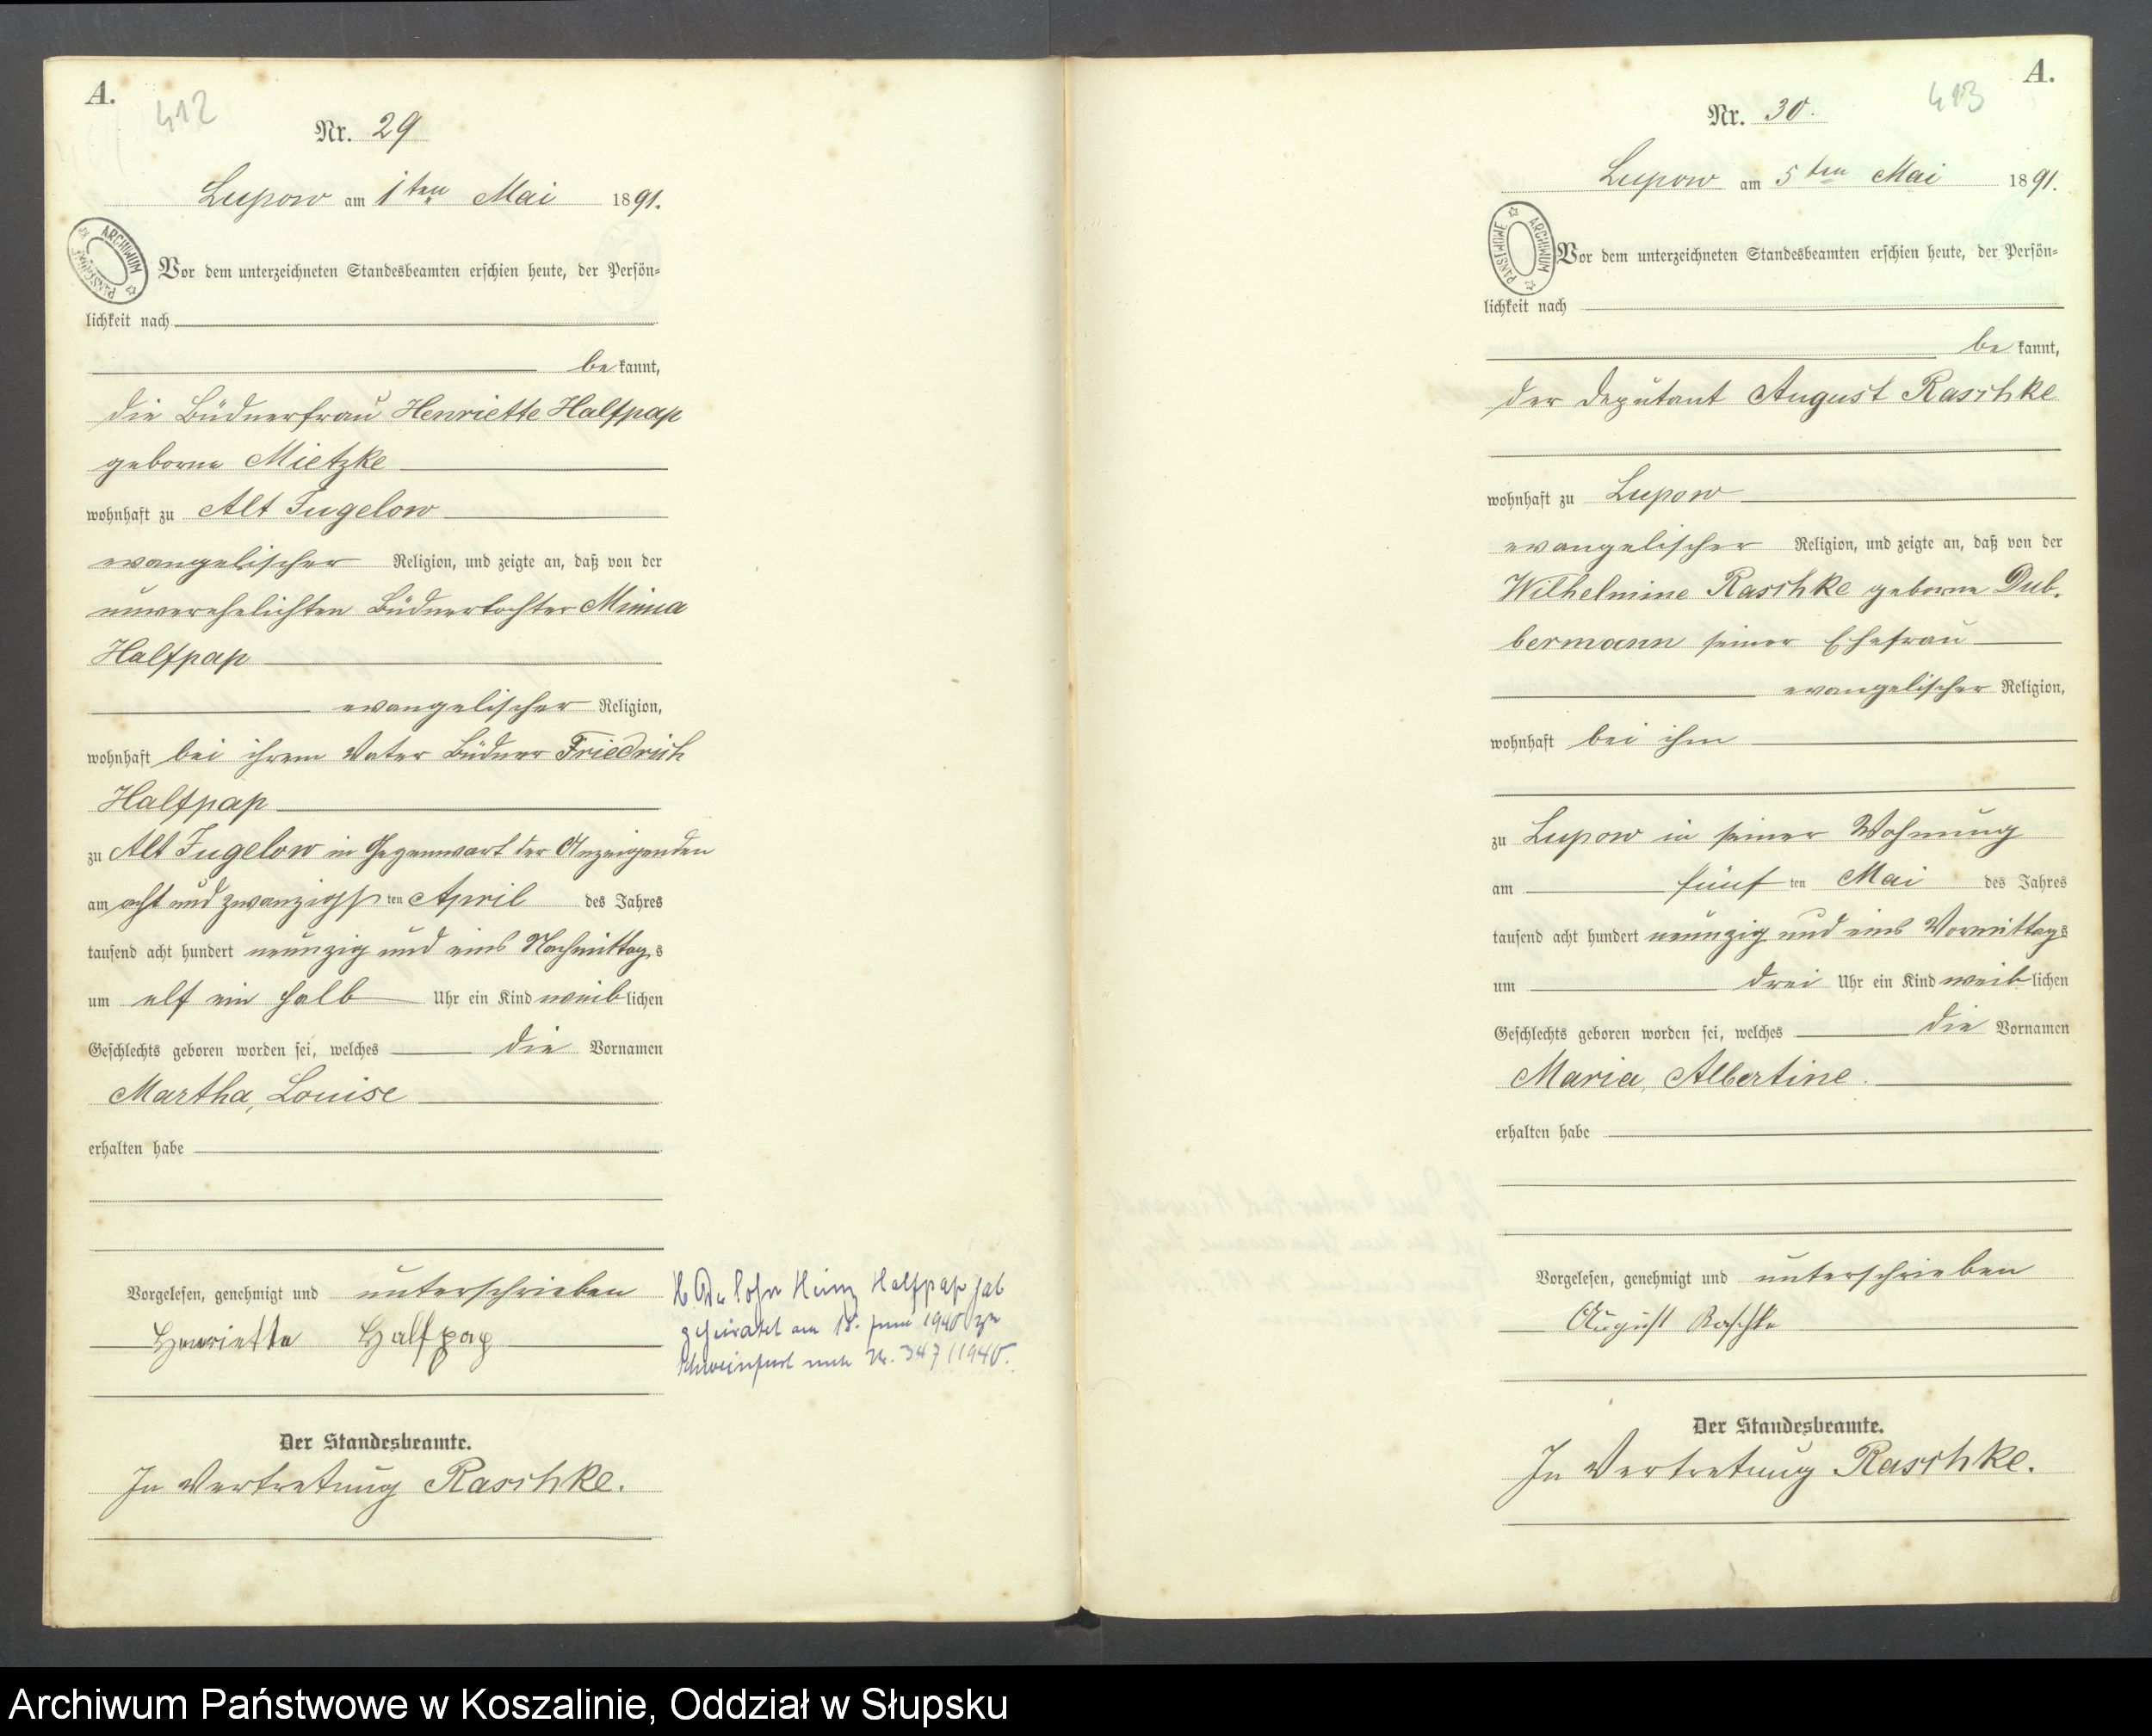 A.
412
Nr. 29
Lupow am 1ten Mai 1891.
ARCHIWUM PAŃSTWOWE
Vor dem unterzeichneten Standesbeamten erschien heute, der Persön-
lichkeit nach
be kannt,
die Büdnerfrau Henriette Halfpap
geborne Mietzke
wohnhaft zu Alt Jugelow
evangelischer Religion, und zeigte an, daß von der
unverehelichten Büdnertochter Minna
Halfpap
evangelischer Religion,
wohnhaft bei ihrem Vater Büdner Friedrich
Halfpap
zu Alt Jugelow in Gegenwart der Anzeigenden
am acht und zwanzigsten April des Jahres
tausend acht hundert neunzig und eins Nachmittags
um elf ein halb Uhr ein Kind weiblichen
Geschlechts geboren worden sei, welches die Vornamen
Martha, Louise
erhalten habe
Vorgelesen, genehmigt und unterschrieben
Henriette Halfpap
Der Sohn Heinz Halfpap hat
geheiratet am 18. Juni 1940 zu
Schweinfurt unter Nr. 347/1940.
Der Standesbeamte.
In Vertretung Raschke.
A.
413
Nr. 30.
Lupow am 5ten Mai 1891.
ARCHIWUM PAŃSTWOWE
Vor dem unterzeichneten Standesbeamten erschien heute, der Persön-
lichkeit nach
be kannt,
der Deputant August Raschke
wohnhaft zu Lupow
evangelischer Religion, und zeigte an, daß von der
Wilhelmine Raschke geborne Dub-
bermann seiner Ehefrau
evangelischer Religion,
wohnhaft bei ihm
zu Lupow in seiner Wohnung
am fünf ten Mai des Jahres
tausend acht hundert neunzig und eins Vormittags
um drei Uhr ein Kind weiblichen
Geschlechts geboren worden sei, welches die Vornamen
Maria, Albertine.
erhalten habe
Vorgelesen, genehmigt und unterschrieben
August Raschke
Der Standesbeamte.
In Vertretung Raschke.
Archiwum Państwowe w Koszalinie, Oddział w Słupsku